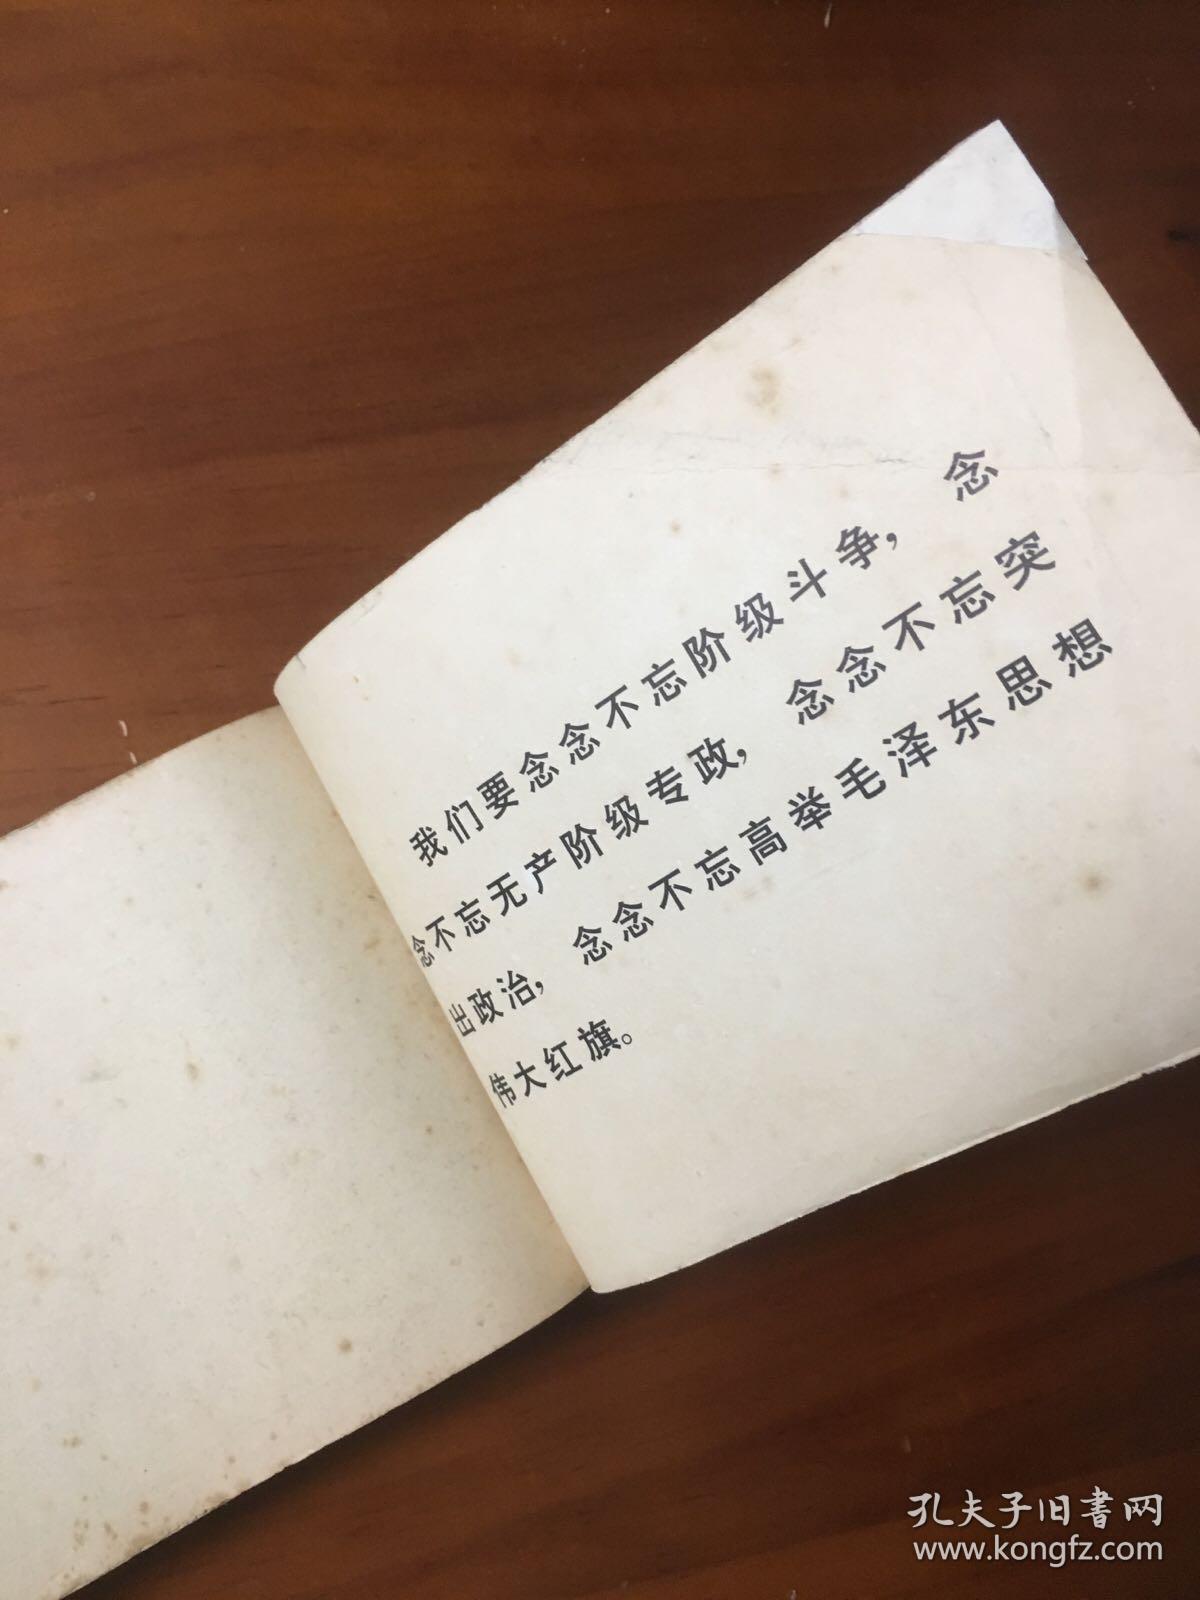 我们要念念不忘阶级斗争，念
念不忘无产阶级专政，念念不忘突
出政治，念念不忘高举毛泽东思想
伟大红旗。
孔夫子旧書网
www.kongfz.com